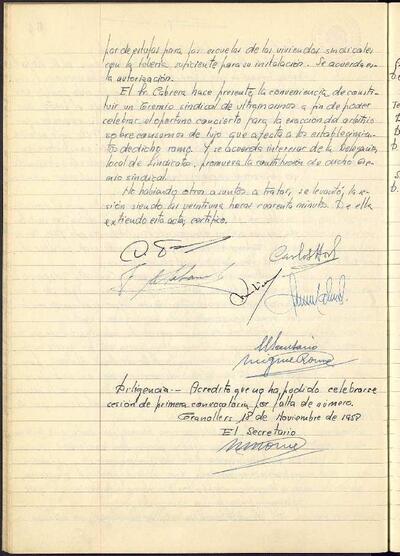 por de estufas para las escuelas de las viviendas sindicales
con la tubería suficiente para su instalación. Se acuerda en la
autorización.
El Sr. Cabrera hace presente la conveniencia de consti-
tuir un Gremio sindical de ultramarinos a fin de poder
celebrar el oportuno concierto para la exacción del arbitrio
sobre consumos de lujo que afecta a los establecimien-
tos de dicho ramo. Y se acuerda interesar de la Delegación
local de Sindicatos, promueva la constitución de dicho Gre-
mio sindical.
No habiendo otros asuntos a tratar, se levantó la se-
sión siendo las veintiuna horas cuarenta minutos. De ella
extiendo esta acta; certifico.
El Secretario
Diligencia.- Acredito que no ha podido celebrarse
sesión de primera convocatoria por falta de número.
Granollers 18 de Noviembre de 1959
El Secretario